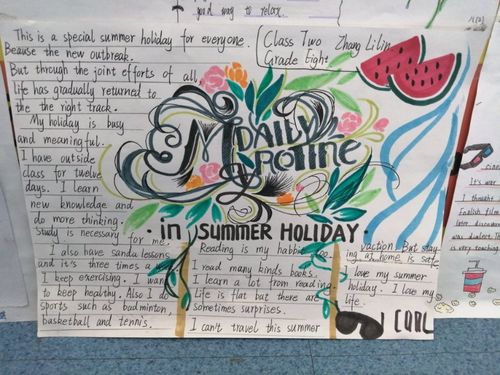 good way to relax.
This is a special summer holiday for everyone.
Beause the new outbreak.
But through the joint efforts of all,
life has gradually returned to
the the right track.
My holiday is busy
and meaningful.
I have outside
class for twelve
days. I learn
new knowledge and
do more thinking.
Study is necessary for me.
I also have sanda lessons
and it's three times a
I keep exercising. I want
to keep healthy. Also I do
sports such as badminton,
basketball and tennis.
Class Two Zhang Lilin
Grade Eight
My DAILY
ROTINE
in SUMMER HOLIDAY
Reading is my habbie too.
I read many kinds books.
I learn a lot from reading
Life is flat but there are
sometimes surprises.
I can't travel this summer
vaction. But stay-
ing at home is safe.
I love my summer
holiday. I love my
life.
COOL
It's war
I thought
English film